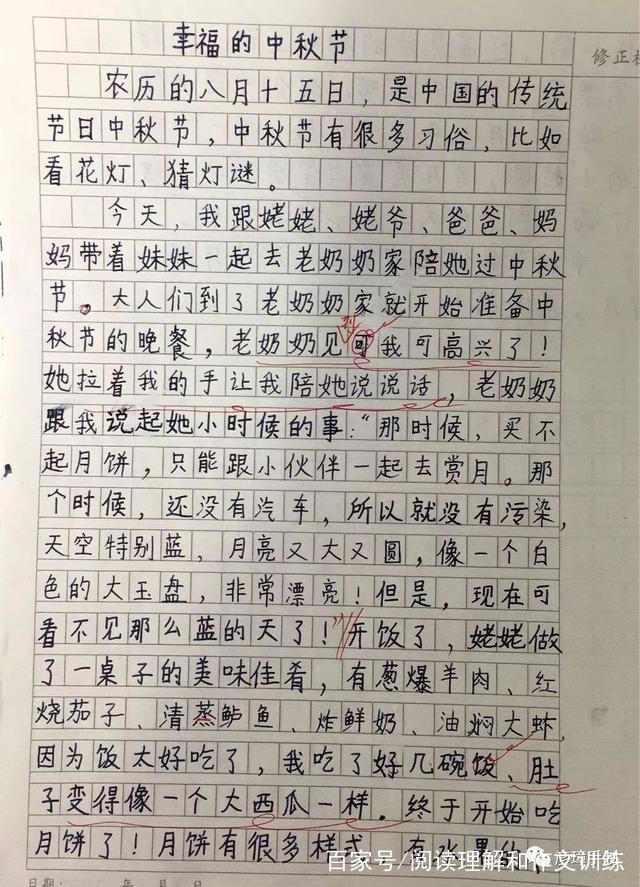 幸福的中秋节
修正
农历的八月十五日，是中国的传统
节日中秋节，中秋节有很多习俗，比如
看花灯、猜灯谜。
今天，我跟姥姥、姥爷、爸爸、妈
妈带着妹妹一起去老奶奶家陪她过中秋
节。大人们到了老奶奶家就开始准备中
秋节的晚餐，老奶奶见到我可高兴了！
她拉着我的手让我陪她说说话，老奶奶
跟我说起她小时候的事：“那时候，买不
起月饼，只能跟小伙伴一起去赏月。那
个时候，还没有汽车，所以就没有污染，
天空特别蓝，月亮又大又圆，像一个白
色的大玉盘，非常漂亮！但是，现在可
看不见那么蓝的天了！”开饭了，姥姥做
了一桌子的美味佳肴，有葱爆羊肉、红
烧茄子、清蒸鲈鱼、炸鲜奶、油焖大虾，
因为饭太好吃了，我吃了好几碗饭、肚
子变得像一个大西瓜一样。终于开始吃
月饼了！月饼有很多样式
百家号/阅读理解和作文训练
日期： 年 月 日